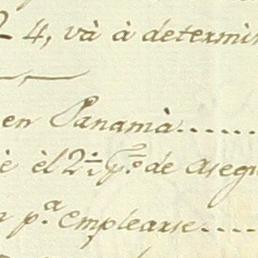 2 4, và à determin
en Panamà......
è èl 2.º de asegu
n p.ª emplearse....